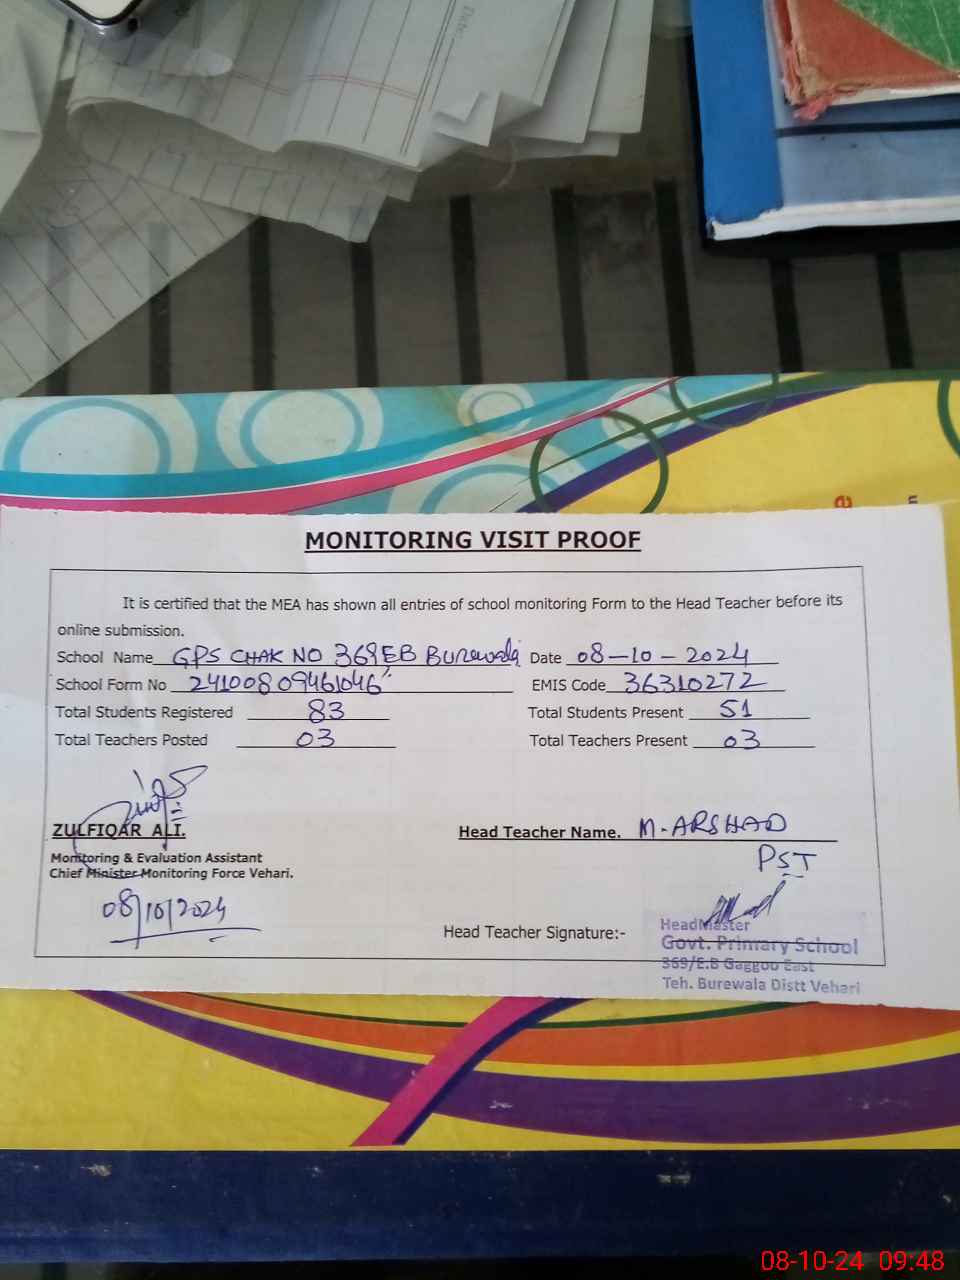 Date:
MONITORING VISIT PROOF
It is certified that the MEA has shown all entries of school monitoring Form to the Head Teacher before its
online submission.
School Name GPS CHAK NO 369EB Burewala Date 08-10-2024
School Form No 24100809461046 EMIS Code 36310272
Total Students Registered 83 Total Students Present 51
Total Teachers Posted 03 Total Teachers Present 03
ZULFIQAR ALI. Head Teacher Name. M. ARSHAD
PST
Monitoring & Evaluation Assistant
Chief Minister Monitoring Force Vehari.
08/10/2024
Head Teacher Signature:-
HeadMaster
Govt. Primary School
369/E.B Gaggoo East
Teh. Burewala Distt Vehari
08-10-24 09:48